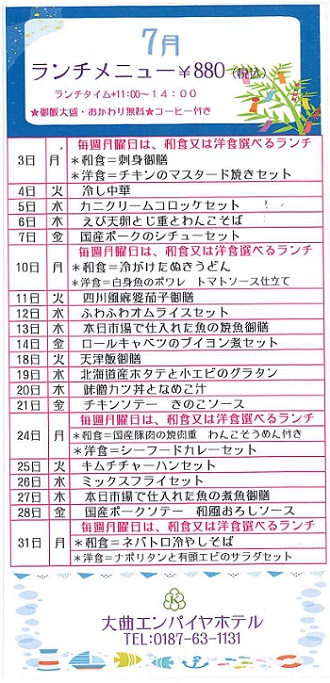 7月
ランチメニュー￥880（税込）
ランチタイム*11:00～14:00
★御飯大盛・おかわり無料★コーヒー付き
毎週月曜日は、和食又は洋食選べるランチ
3日 月 *和食=刺身御膳
*洋食=チキンのマスタード焼きセット
4日 火 冷し中華
5日 水 カニクリームコロッケセット
6日 木 えび天卵とじ重とわんこそば
7日 金 国産ポークのシチューセット
毎週月曜日は、和食又は洋食選べるランチ
10日 月 *和食=冷がけたぬきうどん
*洋食=白身魚のポワレ トマトソース仕立て
11日 火 四川風麻婆茄子御膳
12日 水 ふわふわオムライスセット
13日 木 本日市場で仕入れた魚の焼魚御膳
14日 金 ロールキャベツのブイヨン煮セット
18日 火 天津飯御膳
19日 水 北海道産ホタテと小エビのグラタン
20日 木 味噌カツ丼となめこ汁
21日 金 チキンソテー きのこソース
毎週月曜日は、和食又は洋食選べるランチ
24日 月 *和食=国産豚肉の焼肉重 わんこそうめん付き
*洋食=シーフードカレーセット
25日 火 キムチチャーハンセット
26日 水 ミックスフライセット
27日 木 本日市場で仕入れた魚の煮魚御膳
28日 金 国産ポークソテー 和風おろしソース
毎週月曜日は、和食又は洋食選べるランチ
31日 月 *和食=ネバトロ冷やしそば
*洋食=ナポリタンと有頭エビのサラダセット
大曲エンパイヤホテル
TEL:0187-63-1131